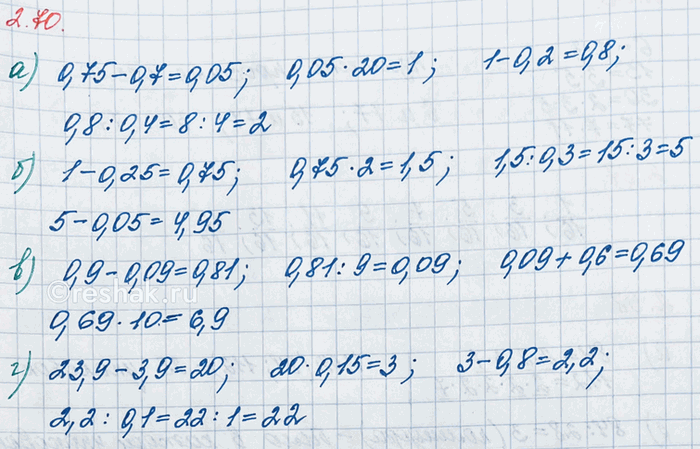 2.70.
а) 0,75-0,7=0,05; 0,05·20=1; 1-0,2=0,8;
0,8:0,4=8:4=2
б) 1-0,25=0,75; 0,75·2=1,5; 1,5:0,3=15:3=5
5-0,05=4,95
в) 0,9-0,09=0,81; 0,81:9=0,09; 0,09+0,6=0,69
©reshak.ru
0,69·10=6,9
г) 23,9-3,9=20; 20·0,15=3; 3-0,8=2,2;
2,2:0,1=22:1=22